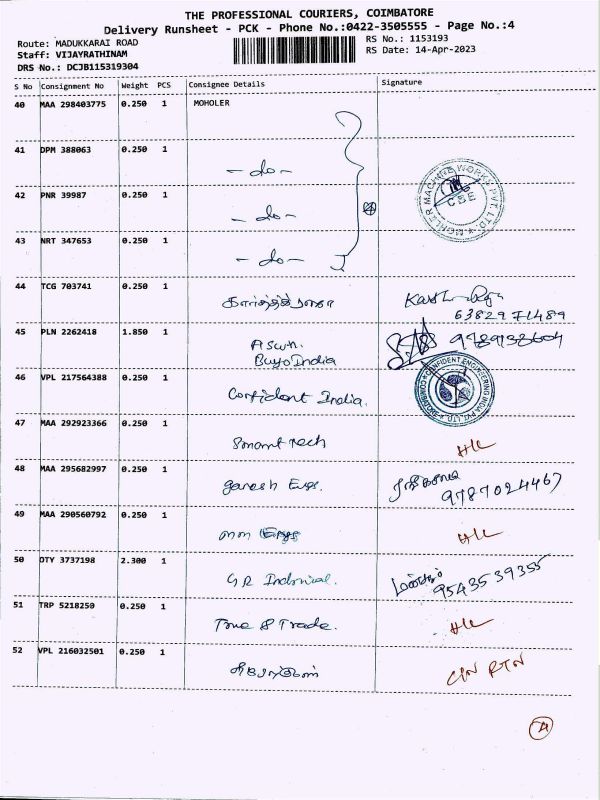 THE PROFESSIONAL COURIERS, COIMBATORE
Delivery Runsheet - PCK - Phone No.:0422-3505555 - Page No.:4
Route: MADUKKARAI ROAD
RS No.: 1153193
Staff: VIJAYRATHINAM
RS Date: 14-Apr-2023
DRS No.: DCJB115319304
S No Consignment No Weight PCS Consignee Details Signature
40 MAA 298403775 0.250 1 MOHOLER
41 DPM 388063 0.250 1
- do -
MOHLER MACHINE WORKS PVT. LTD.
CSE
42 PNR 39987 0.250 1
- do -
43 NRT 347653 0.250 1
- do -
44 TCG 703741 0.250 1
63829 71489
45 PLN 2262418 1.850 1
Buyo India
46 VPL 217564388 0.250 1
Confident India.
CONFIDENT ENGINEERING INDIA PVT. LTD.
COIMBATORE
47 MAA 292923366 0.250 1
Smart tech
H/C
48 MAA 295682997 0.250 1
Ganesh Engs.
9787024467
49 MAA 290560792 0.250 1
H/C
50 OTY 3737198 2.300 1
GR Industrial.
9543539355
51 TRP 5218250 0.250 1
Tone & Trade.
H/C
52 VPL 216032501 0.250 1
RTN